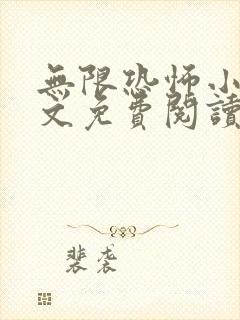 無限恐怖小
文免費閱讀
裴裘